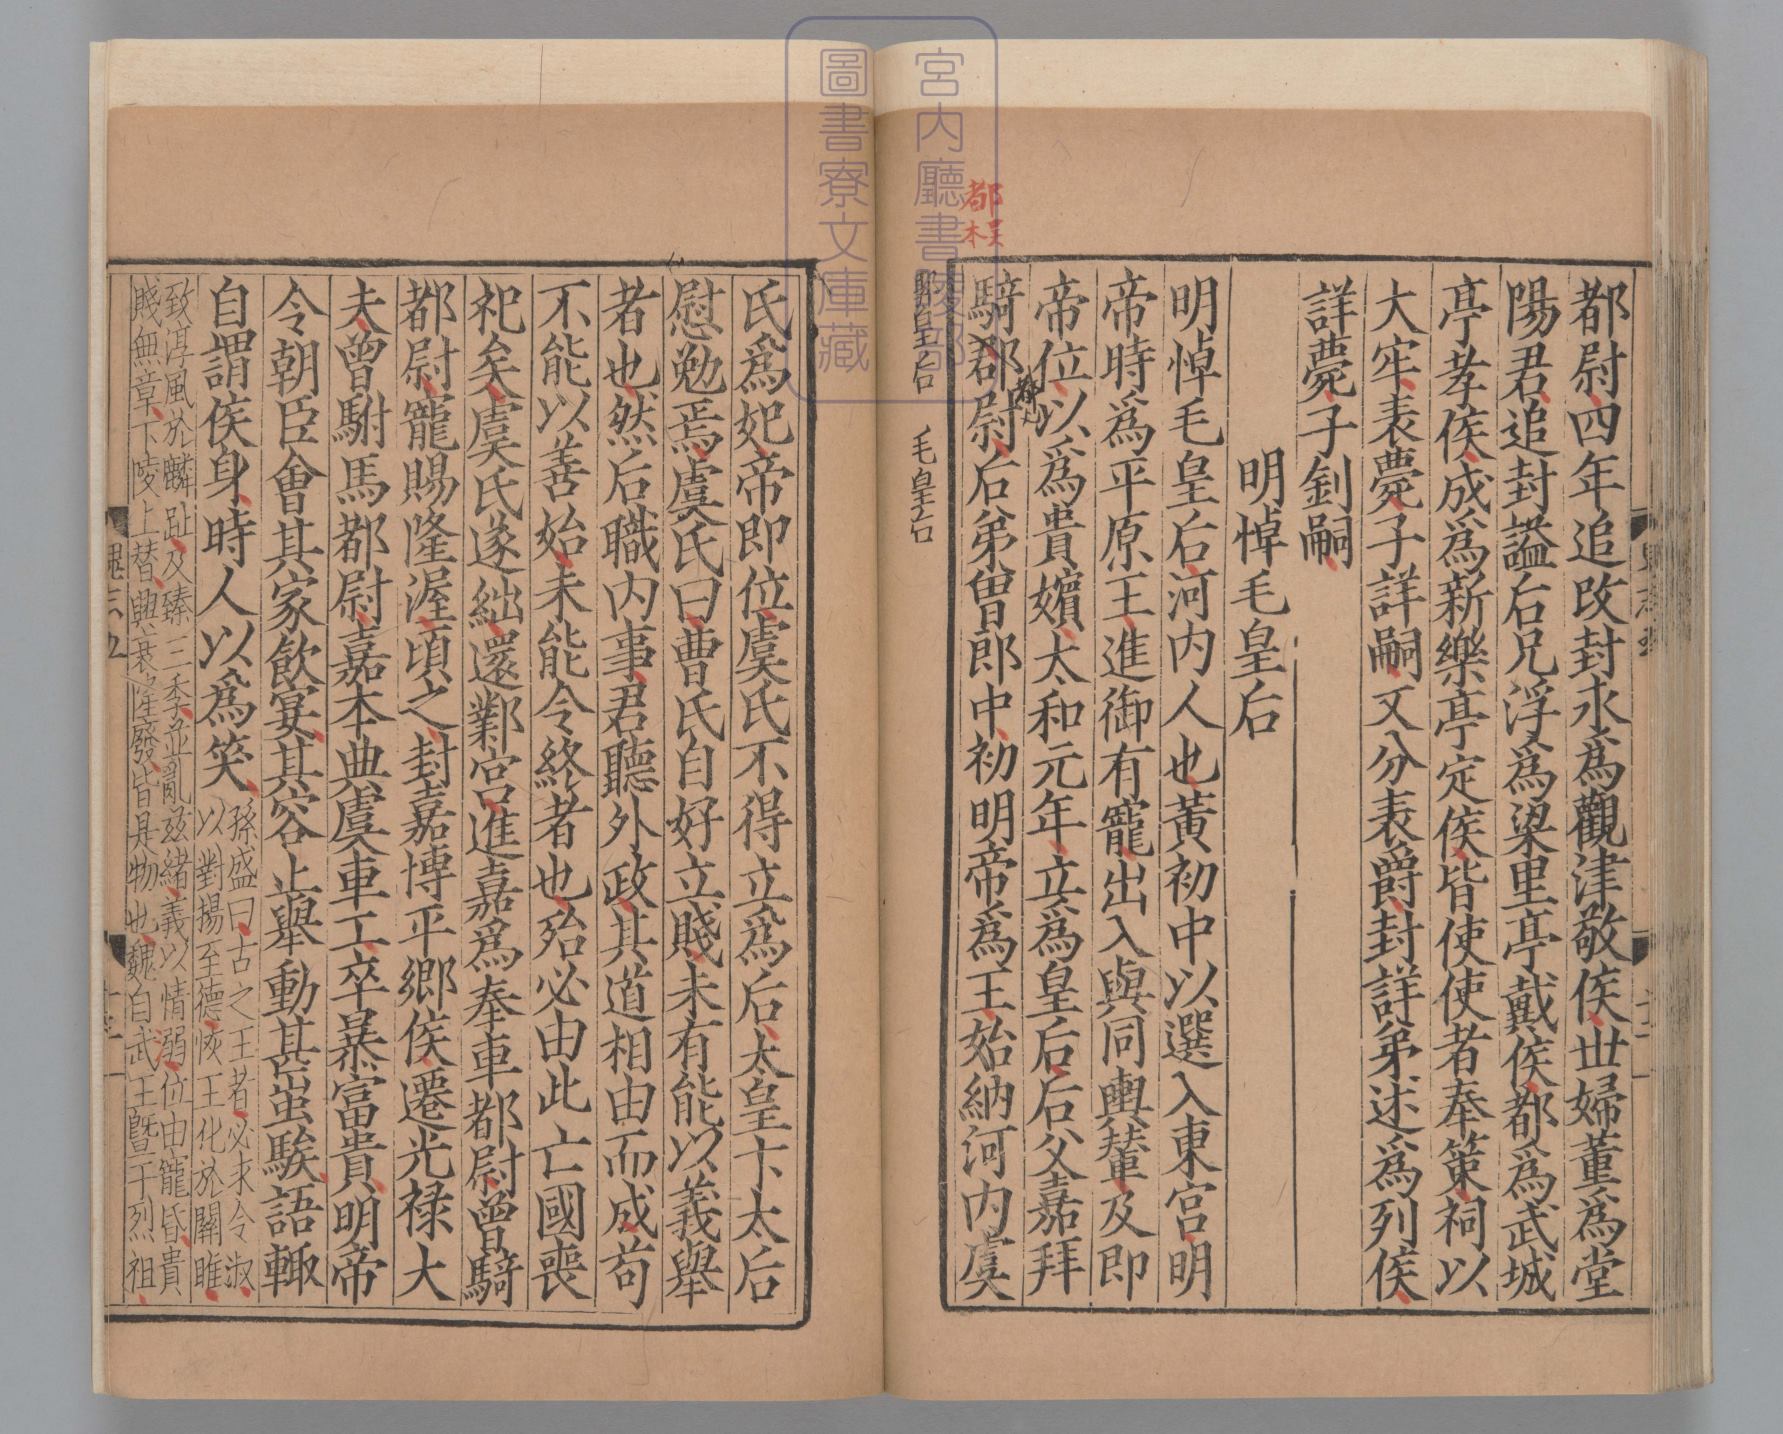 都尉四年追改封永爲觀津敬侯世婦董爲堂
陽君追封謚后兄浮爲梁里亭戴侯都爲武城
亭孝侯成爲新樂亭定侯皆使使者奉策祠以
大牢表薨子詳嗣又分表爵封詳弟述爲列侯
詳薨子釗嗣
明悼毛皇后
明悼毛皇后河内人也黃初中以選入東宮明
帝時爲平原王進御有寵出入與同輿輦及即
帝位以爲貴嬪太和元年立爲皇后后父嘉拜
騎郡尉后弟曾郎中初明帝爲王始納河内虞
都
吴本
毛皇后
氏爲妃帝即位虞氏不得立爲后太皇卞太后
慰勉焉虞氏曰曹氏自好立賤未有能以義舉
者也然后職内事君聽外政其道相由而成苟
不能以善始未能令終者也殆必由此亡國喪
祀矣虞氏遂絀還鄴宮進嘉爲奉車都尉曾騎
都尉寵賜隆渥頃之封嘉博平鄉侯遷光禄大
夫曾駙馬都尉嘉本典虞車工卒暴富貴明帝
令朝臣會其家飲宴其容止舉動甚蚩騃語輒
自謂侯身時人以爲笑
孫盛曰古之王者必求令淑
以對揚至德恢王化於關雎
致淳風於麟趾及臻三季並亂兹緒義以情溺位由寵昏貴
賤無章下陵上替興衰隆廢皆是物也魏自武王曁于烈祖
宮内廳書陵部
圖書寮文庫藏